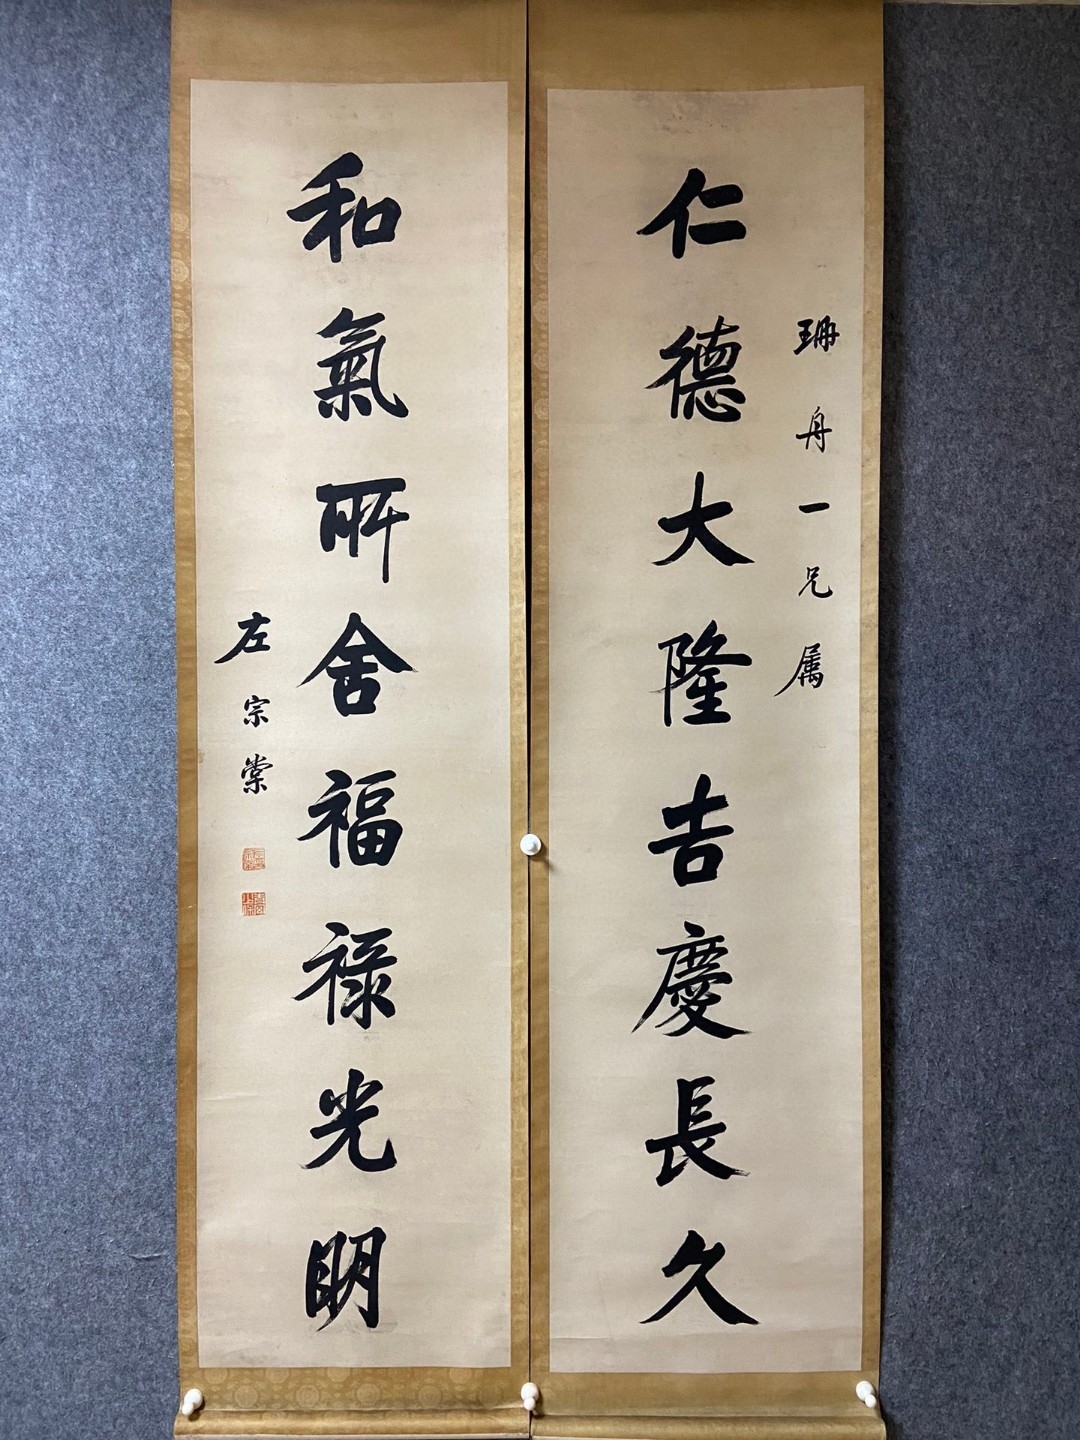 珊舟一兄属
仁德大隆吉慶長久
和氣所舍福禄光明
左宗棠